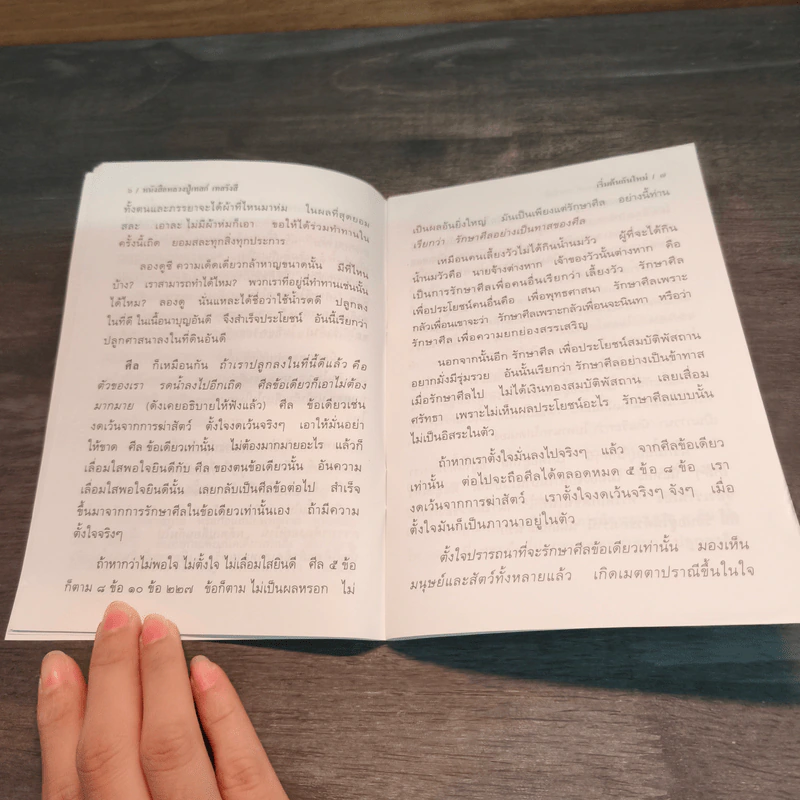 ๖ / หนังสือหลวงปู่เทสก์ เทสรังสี
ทั้งตนและภรรยาจะได้ผ้าที่ไหนมาห่ม ในผลที่สุดยอม
สละ เอาละ ไม่มีผ้าห่มก็เอา ขอให้ได้ร่วมทำทานใน
ครั้งนี้เถิด ยอมสละทุกสิ่งทุกประการ
ลองดูซิ ความเด็ดเดี่ยวกล้าหาญขนาดนั้น มีที่ไหน
บ้าง? เราสามารถทำได้ไหม? พวกเราที่อยู่นี่ทำทานเช่นนั้น
ได้ไหม? ลองดู นั่นแหละได้ชื่อว่าใช้น้ำรดดี ปลูกลง
ในที่ดี ในเนื้อนาบุญอันดี จึงสำเร็จประโยชน์ อันนี้เรียกว่า
ปลูกศาสนาลงในที่ดินอันดี
ศีล ก็เหมือนกัน ถ้าเราปลูกลงในที่นี้ดีแล้ว คือ
ตัวของเรา รดน้ำลงไปอีกเถิด ศีลข้อเดียวก็เอาไม่ต้อง
มากมาย (ดังเคยอธิบายให้ฟังแล้ว) ศีล ข้อเดียวเช่น
งดเว้นจากการฆ่าสัตว์ ตั้งใจงดเว้นจริงๆ เอาให้มั่นอย่า
ให้ขาด ศีล ข้อเดียวเท่านั้น ไม่ต้องมากมายอะไร แล้วก็
เลื่อมใสพอใจยินดีกับ ศีล ของตนข้อเดียวนั้น อันความ
เลื่อมใสพอใจยินดีนั้น เลยกลับเป็นศีลข้อต่อไป สำเร็จ
ขึ้นมาจากการรักษาศีลในข้อเดียวเท่านั้นเอง ถ้ามีความ
ตั้งใจจริงๆ
ถ้าหากว่าไม่พอใจ ไม่ตั้งใจ ไม่เลื่อมใสยินดี ศีล ๕ ข้อ
ก็ตาม ๘ ข้อ ๑๐ ข้อ ๒๒๗ ข้อก็ตาม ไม่เป็นผลหรอก ไม่
เริ่มต้นกันใหม่ / ๗
เป็นผลอันยิ่งใหญ่ มันเป็นเพียงแต่รักษาศีล อย่างนี้ท่าน
เรียกว่า รักษาศีลอย่างเป็นทาสของศีล
เหมือนคนเลี้ยงวัวไม่ได้กินน้ำนมวัว ผู้ที่จะได้กิน
น้ำนมวัวคือ นายจ้างต่างหาก เจ้าของวัวนั้นต่างหาก คือ
เป็นการรักษาศีลเพื่อคนอื่นเรียกว่า เลี้ยงวัว รักษาศีล
เพื่อประโยชน์คนอื่นคือ เพื่อพุทธศาสนา รักษาศีลเพราะ
กลัวเพื่อนเขาจะว่า รักษาศีลเพราะกลัวเพื่อนจะนินทา หรือว่า
รักษาศีล เพื่อความยกย่องสรรเสริญ
นอกจากนั้นอีก รักษาศีล เพื่อประโยชน์สมบัติพัสถาน
อยากมั่งมีร่ำรวย อันนั้นเรียกว่า รักษาศีลอย่างเป็นข้าทาส
เมื่อรักษาศีลไป ไม่ได้เงินทองสมบัติพัสถาน เลยเสื่อม
ศรัทธา เพราะไม่เห็นผลประโยชน์อะไร รักษาศีลแบบนั้น
ไม่เป็นอิสระในตัว
ถ้าหากเราตั้งใจมั่นลงไปจริงๆ แล้ว จากศีลข้อเดียว
เท่านั้น ต่อไปจะถือศีลได้ตลอดหมด ๕ ข้อ ๘ ข้อ เรา
งดเว้นจากการฆ่าสัตว์ เราตั้งใจงดเว้นจริงๆ จังๆ เมื่อ
ตั้งใจมันก็เป็นภาวนาอยู่ในตัว
ตั้งใจปรารถนาที่จะรักษาศีลข้อเดียวเท่านั้น มองเห็น
มนุษย์และสัตว์ทั้งหลายแล้ว เกิดเมตตาปราณีขึ้นในใจ